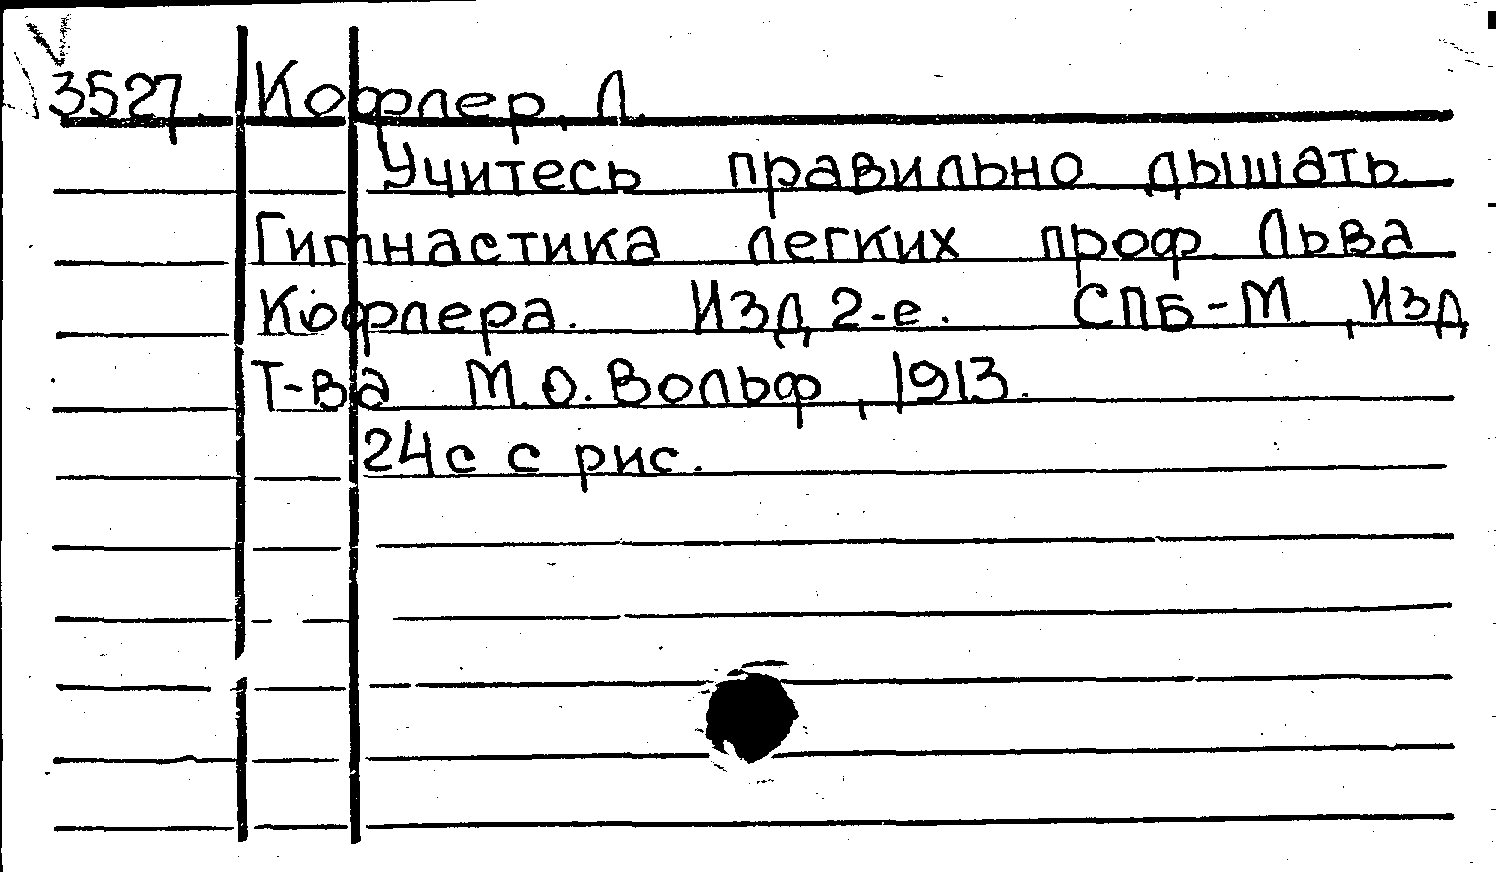 3527. Кофлер, Л.
Учитесь правильно дышать.
Гимнастика легких проф. Льва
Кофлера. Изд. 2-е. СПБ-М, Изд
Т-ва М.О.Вольф, 1913.
24с с рис.